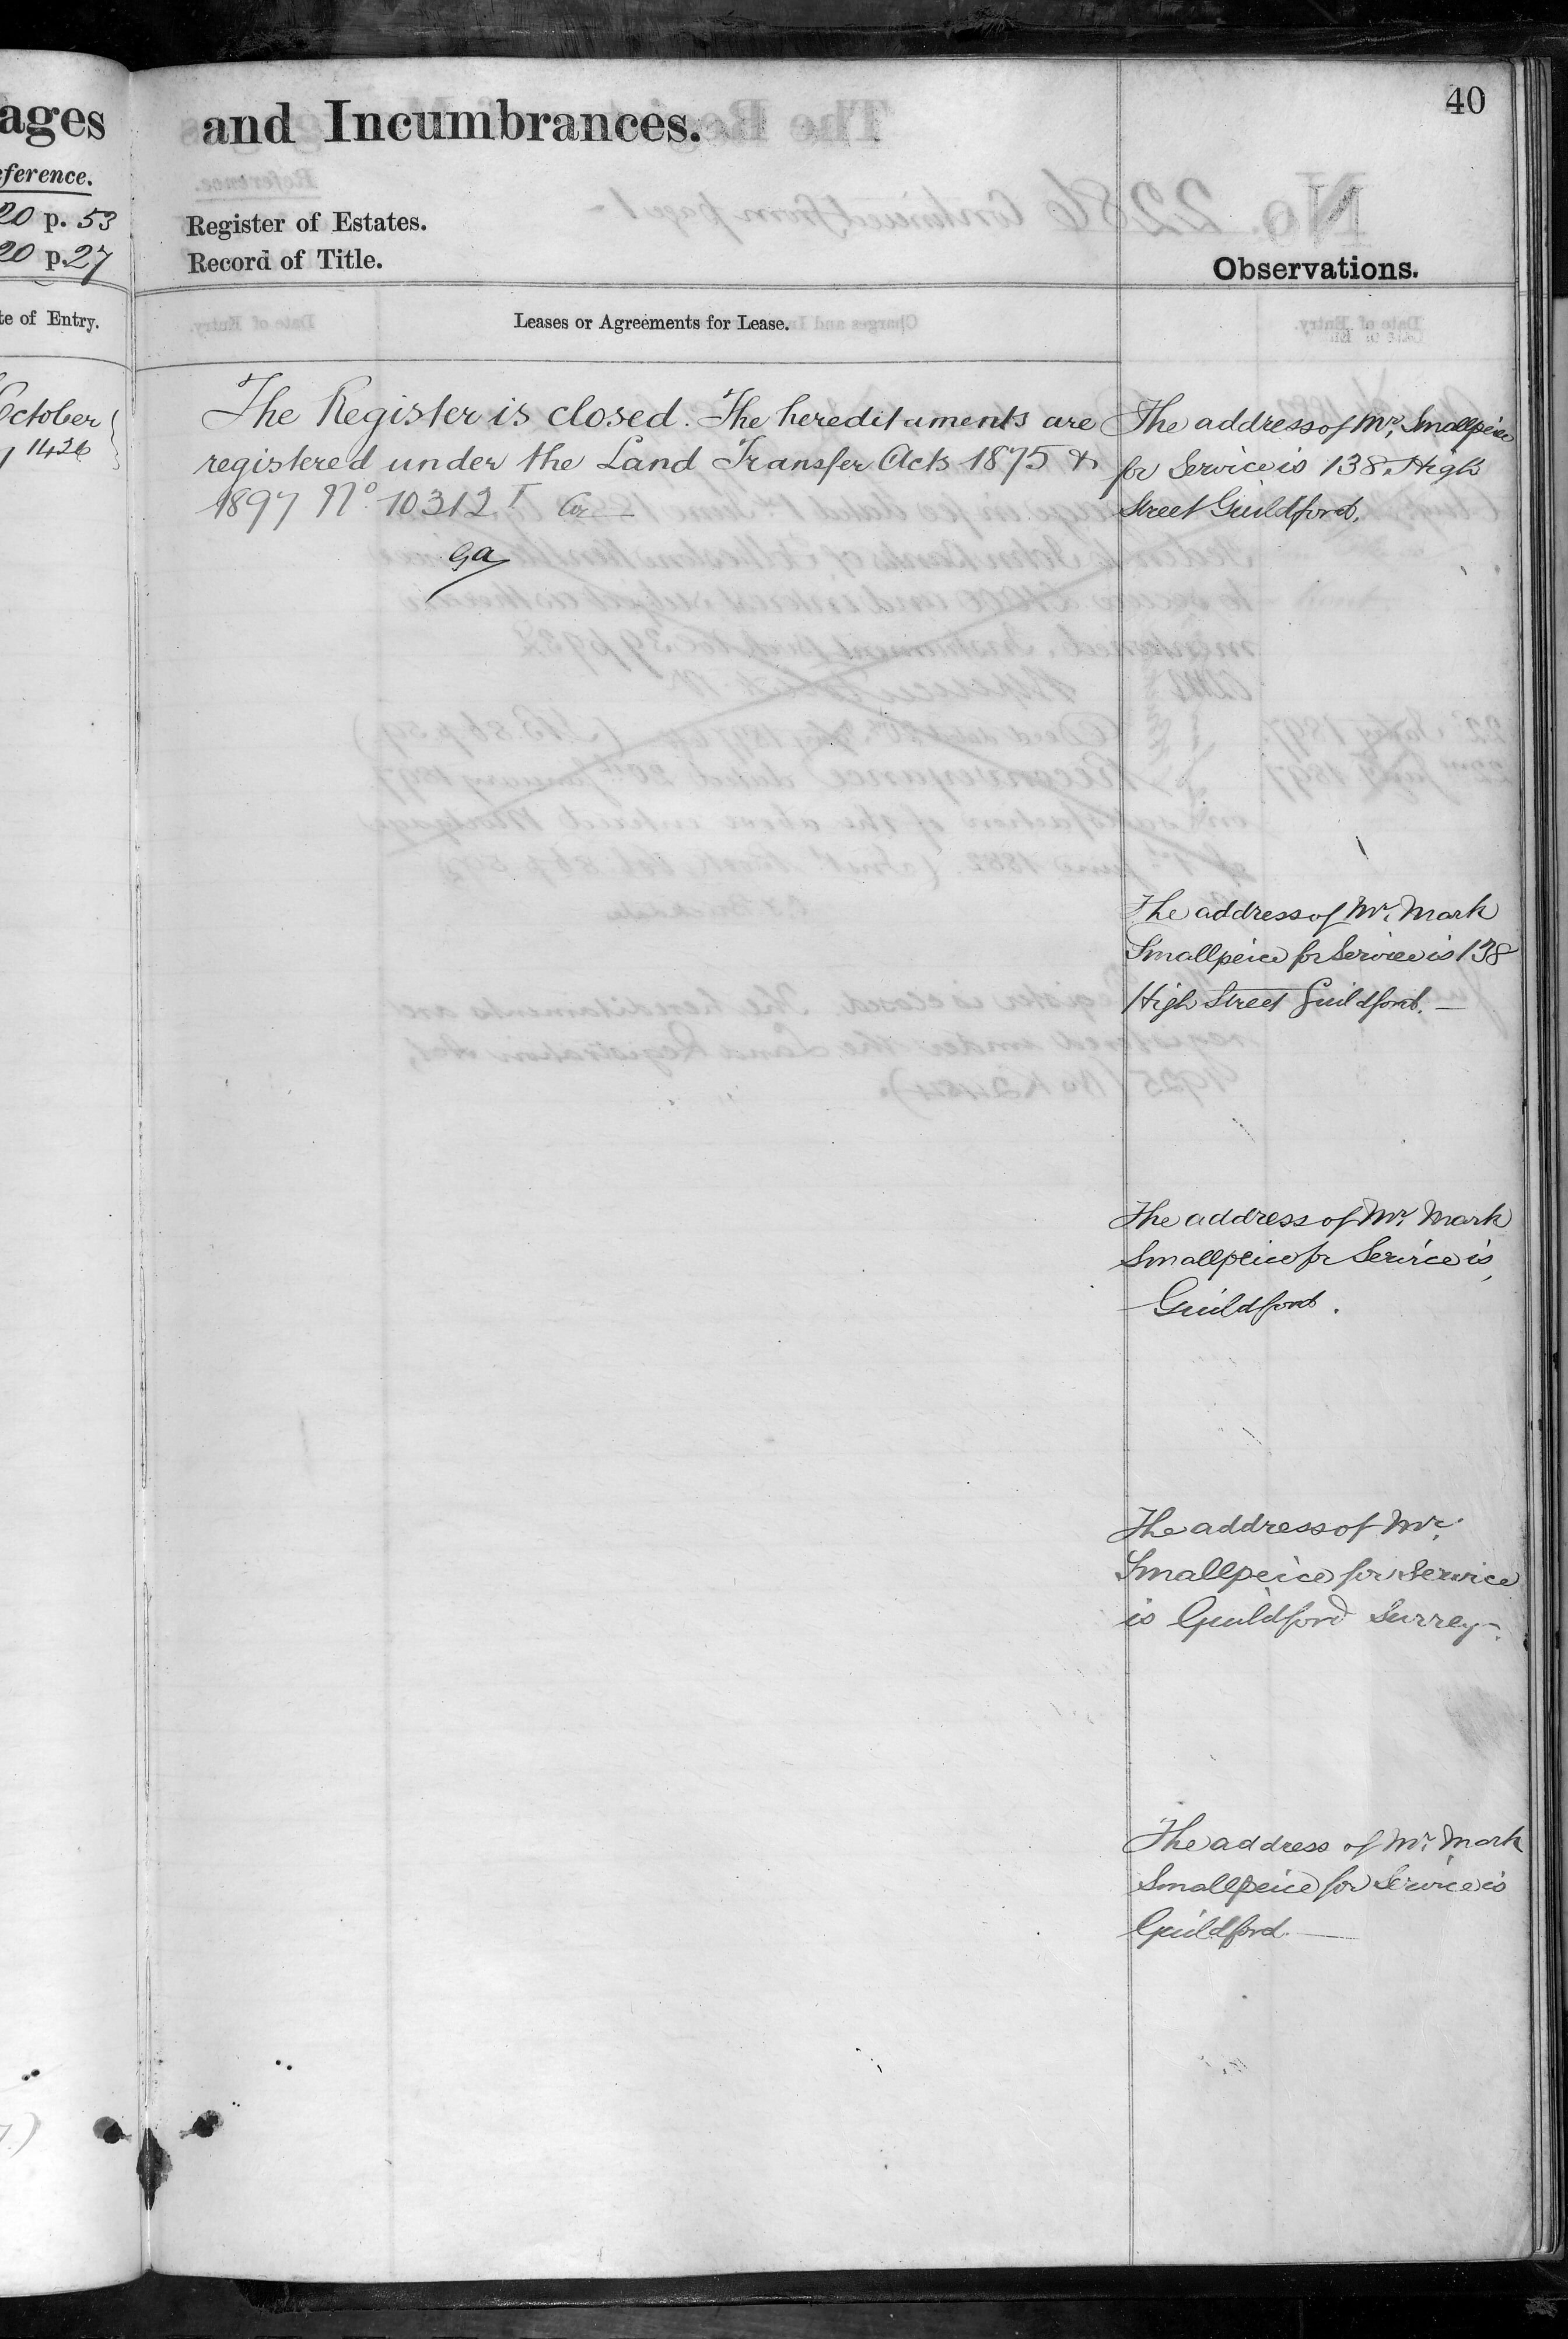 ages
eference.
20 p. 53
20 p. 27
te of Entry.
October
1426
and Incumbrances.
40
Register of Estates.
Record of Title.
Observations.
Leases or Agreements for Lease.
The Register is closed. The hereditaments are
registered under the Land Transfer Acts 1875 &
1897 No. 10312
The address of Mr. Smallpeice
for Service is 138, High
Street Guildford.
The address of Mr. Mark
Smallpeice for Service is 138
High Street Guildford. —
The address of Mr. Mark
Smallpeice for Service is
Guildford.
The address of Mr.
Smallpeice for Service
is Guildford Surrey.
The address of Mr. Mark
Smallpeice for Service is
Guildford. —